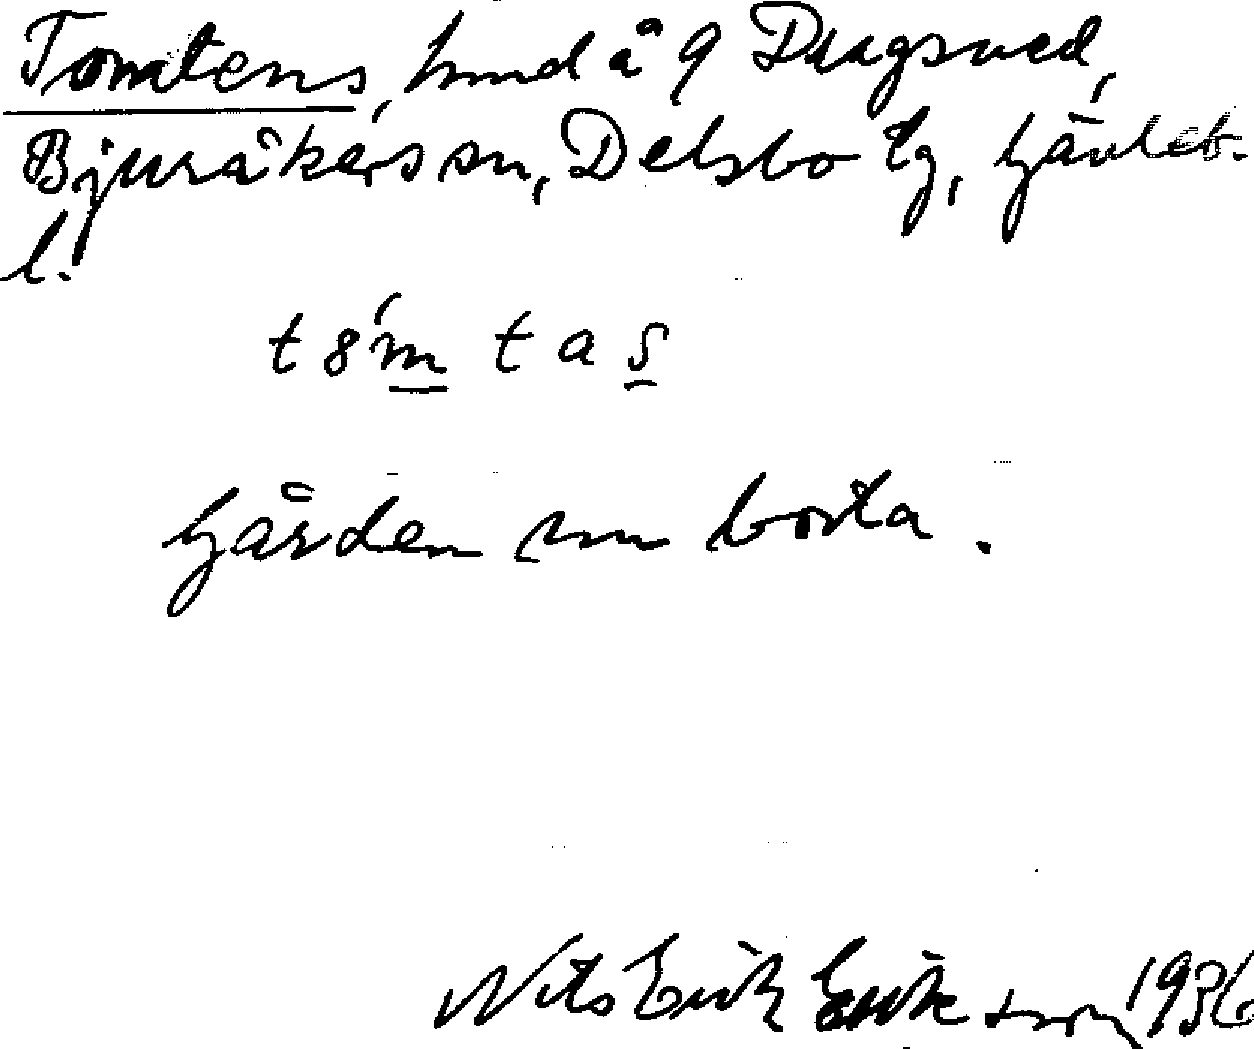 Tomtens, hmd å 9 Dragsved,
Bjuråkers sn, Delsbo tg, Gävleb.
l.
t8́m tas
Gården sn borta.
Nils Erik Eriksson 1936